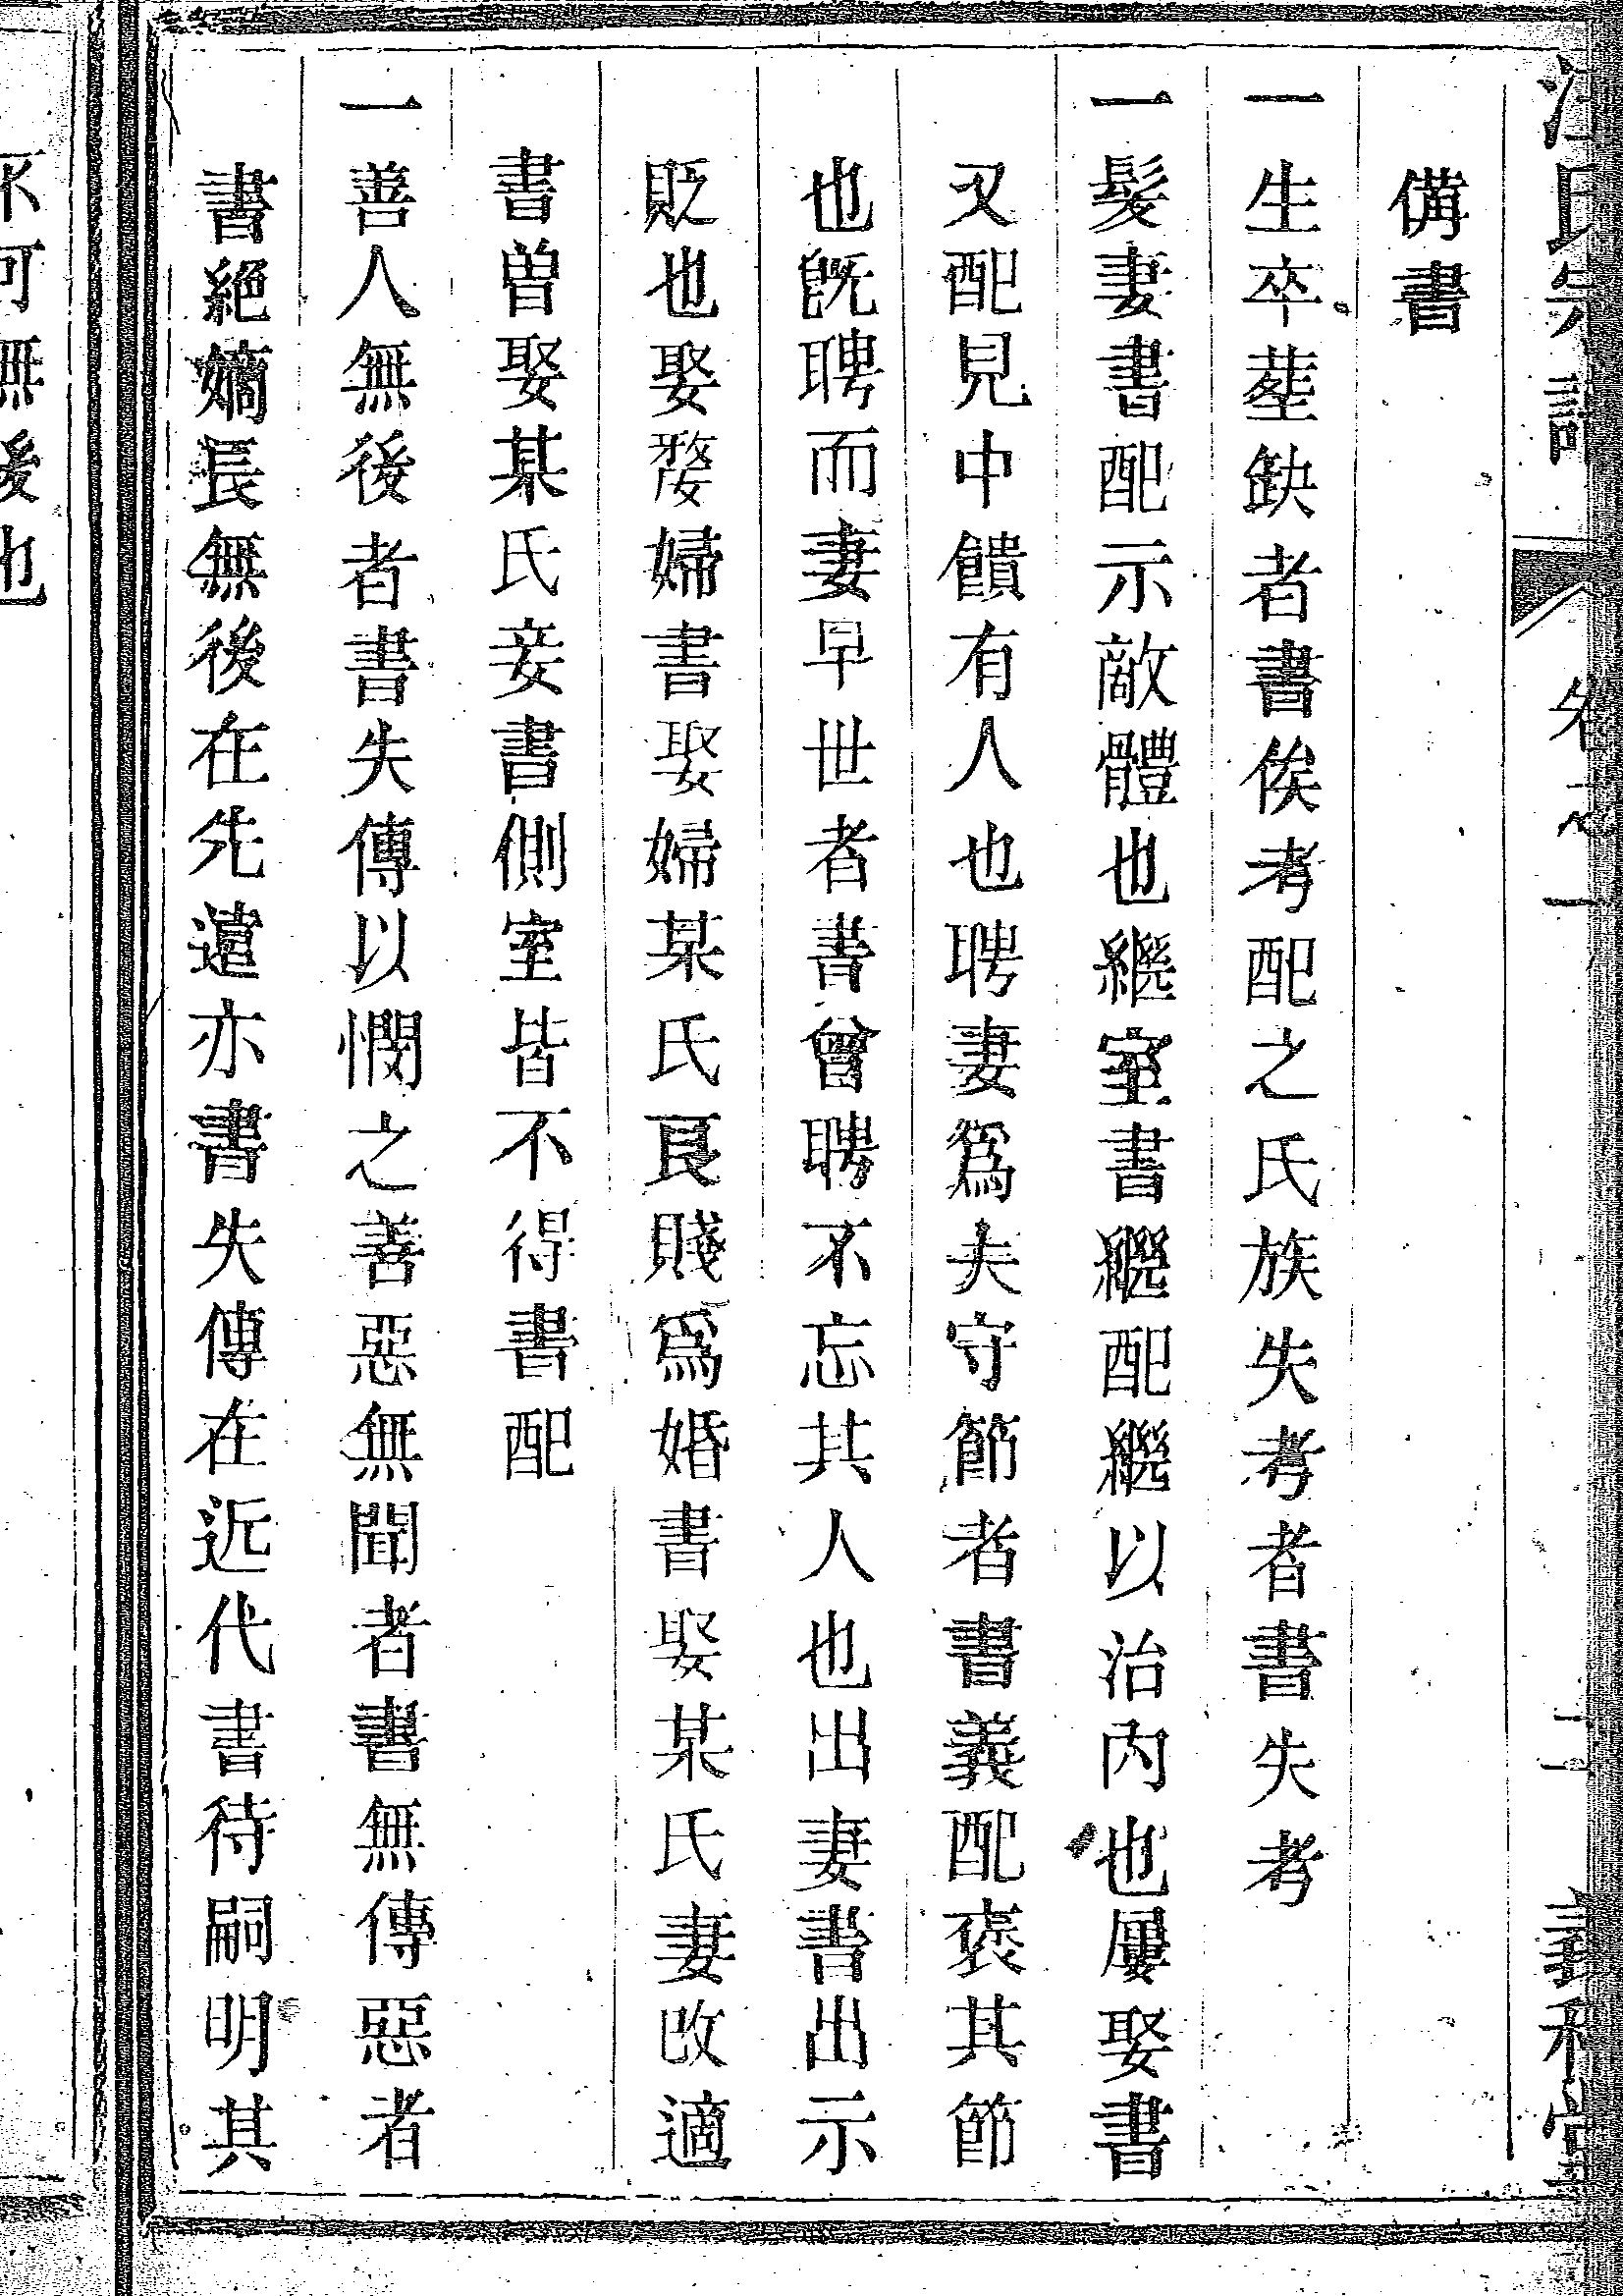 氏宗譜 卷之一 二 義和堂
備書
一生卒塟缺者書俟考配之氏族失考者書失考
一髮妻書配示敵體也繼室書繼配繼以治內也屢娶書
又配見中饋有人也聘妻爲夫守節者書義配褒其節
也旣聘而妻早世者書曾聘不忘其人也出妻書出示
貶也娶婺婦書娶婦某氏良賤爲婚書娶某氏妻改適
書曾娶某氏妾書側室皆不得書配
一善人無後者書失傳以憫之善惡無聞者書無傳惡者
書絕嫡長無後在先遠亦書失傳在近代書待嗣明其
不可無後也